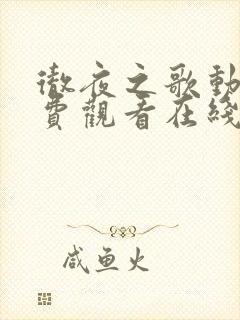 徹夜之歌動
費觀看在綫
咸鱼火